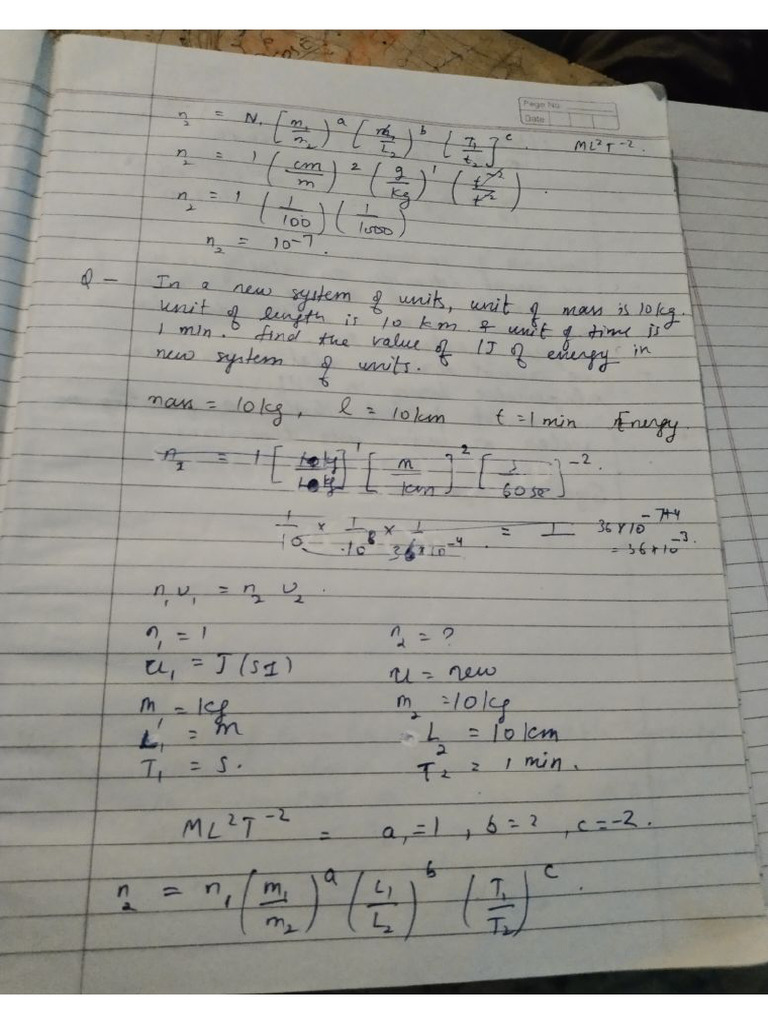 Page No.
Date
n₂ = N₁ [m₁/m₂]ᵃ (L₁/L₂)ᵇ [T₁/t₂]ᶜ. ML²T⁻².
n₂ = 1 (cm/m)² (g/kg)¹ (t⁻²/t⁻²).
n₂ = 1 (1/100) (1/1000)
n₂ = 10⁻⁷.
Q — In a new system of units, unit of mass is 10kg.
unit of length is 10 km & unit of time is
1 min. find the value of 1J of energy in
new system of units.
mass = 10kg, l = 10km t = 1 min Energy
n₂ = 1 [kg/10kg]¹ [m/km]² [s/60se]⁻².
1/10 × 1/10⁸ × 1/36×10⁻⁴ = 1 36×10⁻⁷⁺⁴
= 36×10⁻³.
n₁u₁ = n₂ u₂.
n₁ = 1 n₂ = ?
u₁ = J (SI) u = new
m₁ = kg m₂ = 10kg
L₁ = m L₂ = 10km
T₁ = s. T₂ = 1 min.
ML²T⁻² = a₁=1, b=2, c=-2.
n₂ = n₁ (m₁/m₂)ᵃ (L₁/L₂)ᵇ (T₁/T₂)ᶜ.